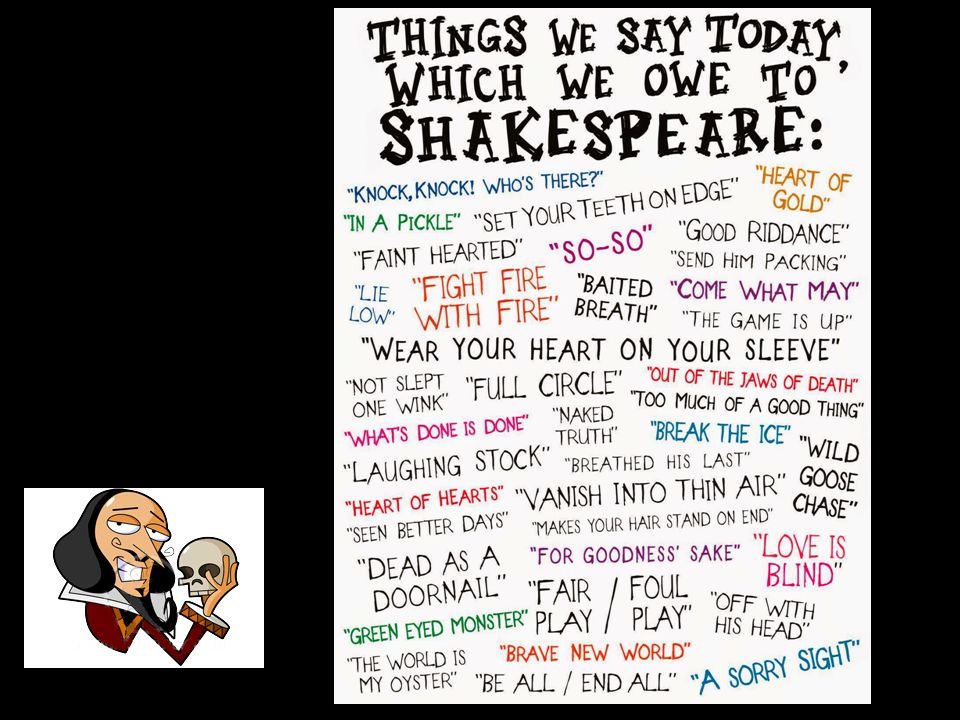 THINGS WE SAY TODAY,
WHICH WE OWE TO
SHAKESPEARE:
"KNOCK, KNOCK! WHO'S THERE?"
"HEART OF
GOLD"
"IN A PICKLE"
"SET YOUR TEETH ON EDGE"
"FAINT HEARTED"
"SO-SO"
"GOOD RIDDANCE"
"SEND HIM PACKING"
"LIE
LOW"
"FIGHT FIRE
WITH FIRE"
"BAITED
BREATH"
"COME WHAT MAY"
"THE GAME IS UP"
"WEAR YOUR HEART ON YOUR SLEEVE"
"NOT SLEPT
ONE WINK"
"FULL CIRCLE"
"OUT OF THE JAWS OF DEATH"
"TOO MUCH OF A GOOD THING"
"WHAT'S DONE IS DONE"
"NAKED
TRUTH"
"BREAK THE ICE"
"WILD
GOOSE
CHASE"
"LAUGHING STOCK"
"BREATHED HIS LAST"
"HEART OF HEARTS"
"VANISH INTO THIN AIR"
"SEEN BETTER DAYS"
"MAKES YOUR HAIR STAND ON END"
"DEAD AS A
DOORNAIL"
"FOR GOODNESS' SAKE"
"LOVE IS
BLIND"
"FAIR / FOUL
PLAY / PLAY"
"OFF WITH
HIS HEAD"
"GREEN EYED MONSTER"
"THE WORLD IS
MY OYSTER"
"BRAVE NEW WORLD"
"BE ALL / END ALL"
"A SORRY SIGHT"